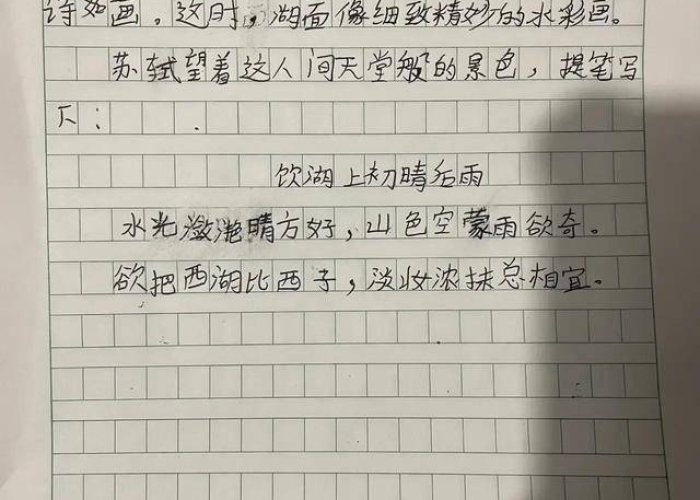 诗如画。这时，湖面像细致精妙的水彩画。
苏轼望着这人间天堂般的景色，提笔写
下：
饮湖上初晴后雨
水光潋滟晴方好，山色空蒙雨欲奇。
欲把西湖比西子，淡妆浓抹总相宜。